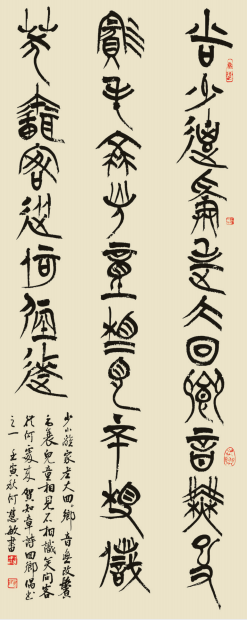 少小離家老大回鄉音無改
鬢毛衰兒童相見不相識
笑問客從何處來
少小離家老大回鄉音無改鬢
毛衰兒童相見不相識笑問客
從何處來賀知章詩回鄉偶書
之一壬寅秋何慧敏書